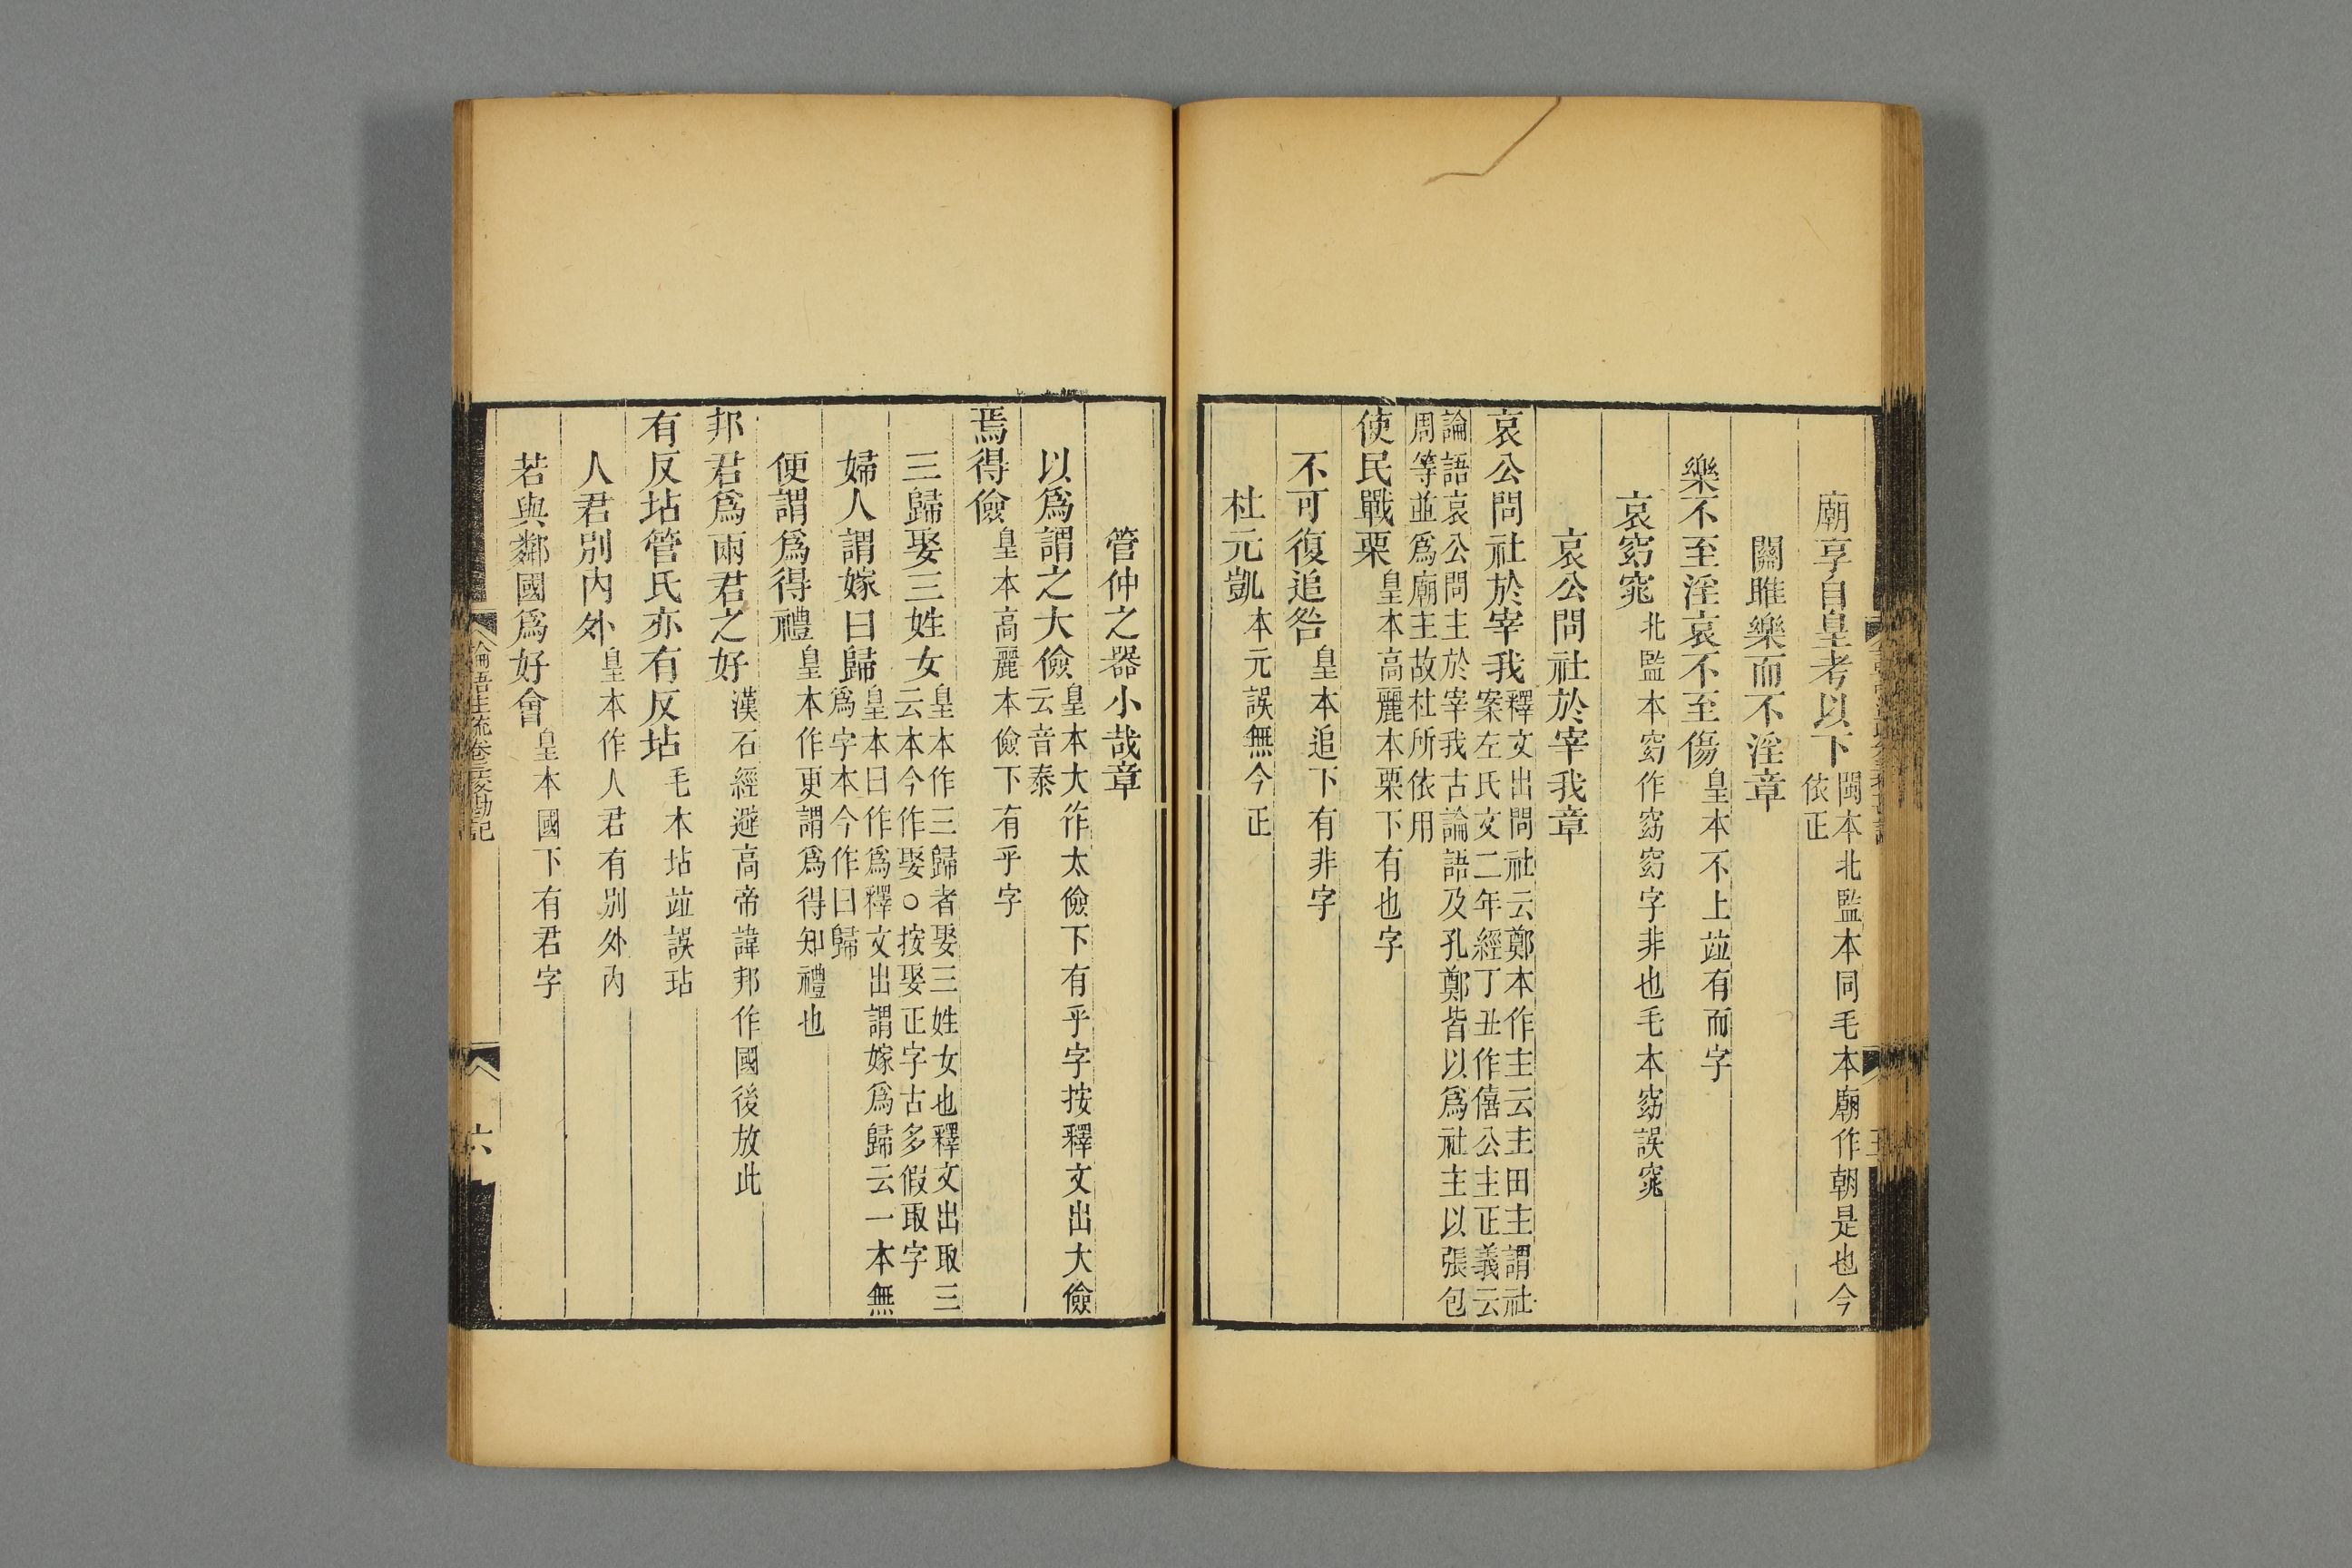 廟享自皇考以下閩本北監本同毛本廟作朝是也今
依正
關雎樂而不淫章
樂不至淫哀不至傷皇本不上竝有而字
哀窈窕北監本窈作窈窈字非也毛本窈誤窕
哀公問社於宰我章
哀公問社於宰我釋文出問社云鄭本作主云主田主謂社
案左氏文二年經丁丑作僖公主正義云
論語哀公問主於宰我古論語及孔鄭皆以爲社主以張包
周等並爲廟主故杜所依用
使民戰栗皇本高麗本栗下有也字
不可復追咎皇本追下有非字
杜元凱本元誤無今正
管仲之器小哉章
以爲謂之大儉皇本大作太儉下有乎字按釋文出大儉
云音泰
焉得儉皇本高麗本儉下有乎字
三歸娶三姓女皇本作三歸者娶三姓女也釋文出取三
云本今作娶○按娶正字古多假取字
婦人謂嫁曰歸皇本曰作爲釋文出謂嫁爲歸云一本無
爲字本今作曰歸
便謂爲得禮皇本作更謂爲得知禮也
邦君爲兩君之好漢石經避高帝諱邦作國後放此
有反坫管氏亦有反坫毛木坫竝誤玷
人君別內外皇本作人君有別外內
若與鄰國爲好會皇本國下有君字
論語注疏卷三挍勘記
六